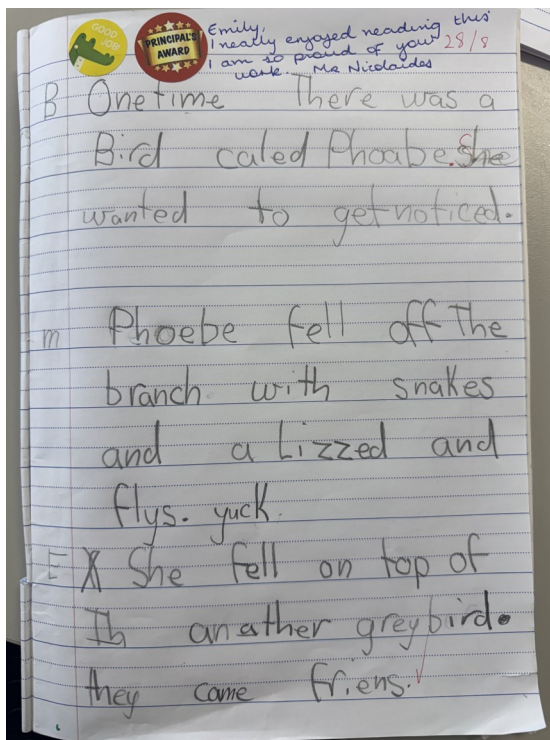 GOOD JOB!
PRINCIPAL'S AWARD
Emily,
I really enjoyed reading this
28/8
I am so proud of your
work. Ms Nicolaides
B One time There was a
Bird caled Phoabe. She
wanted to get noticed.
m Phoebe fell off The
branch with snakes
and a Lizzed and
flys. yuck.
E X She fell on top of
Ih anather grey bird.
they came friens.